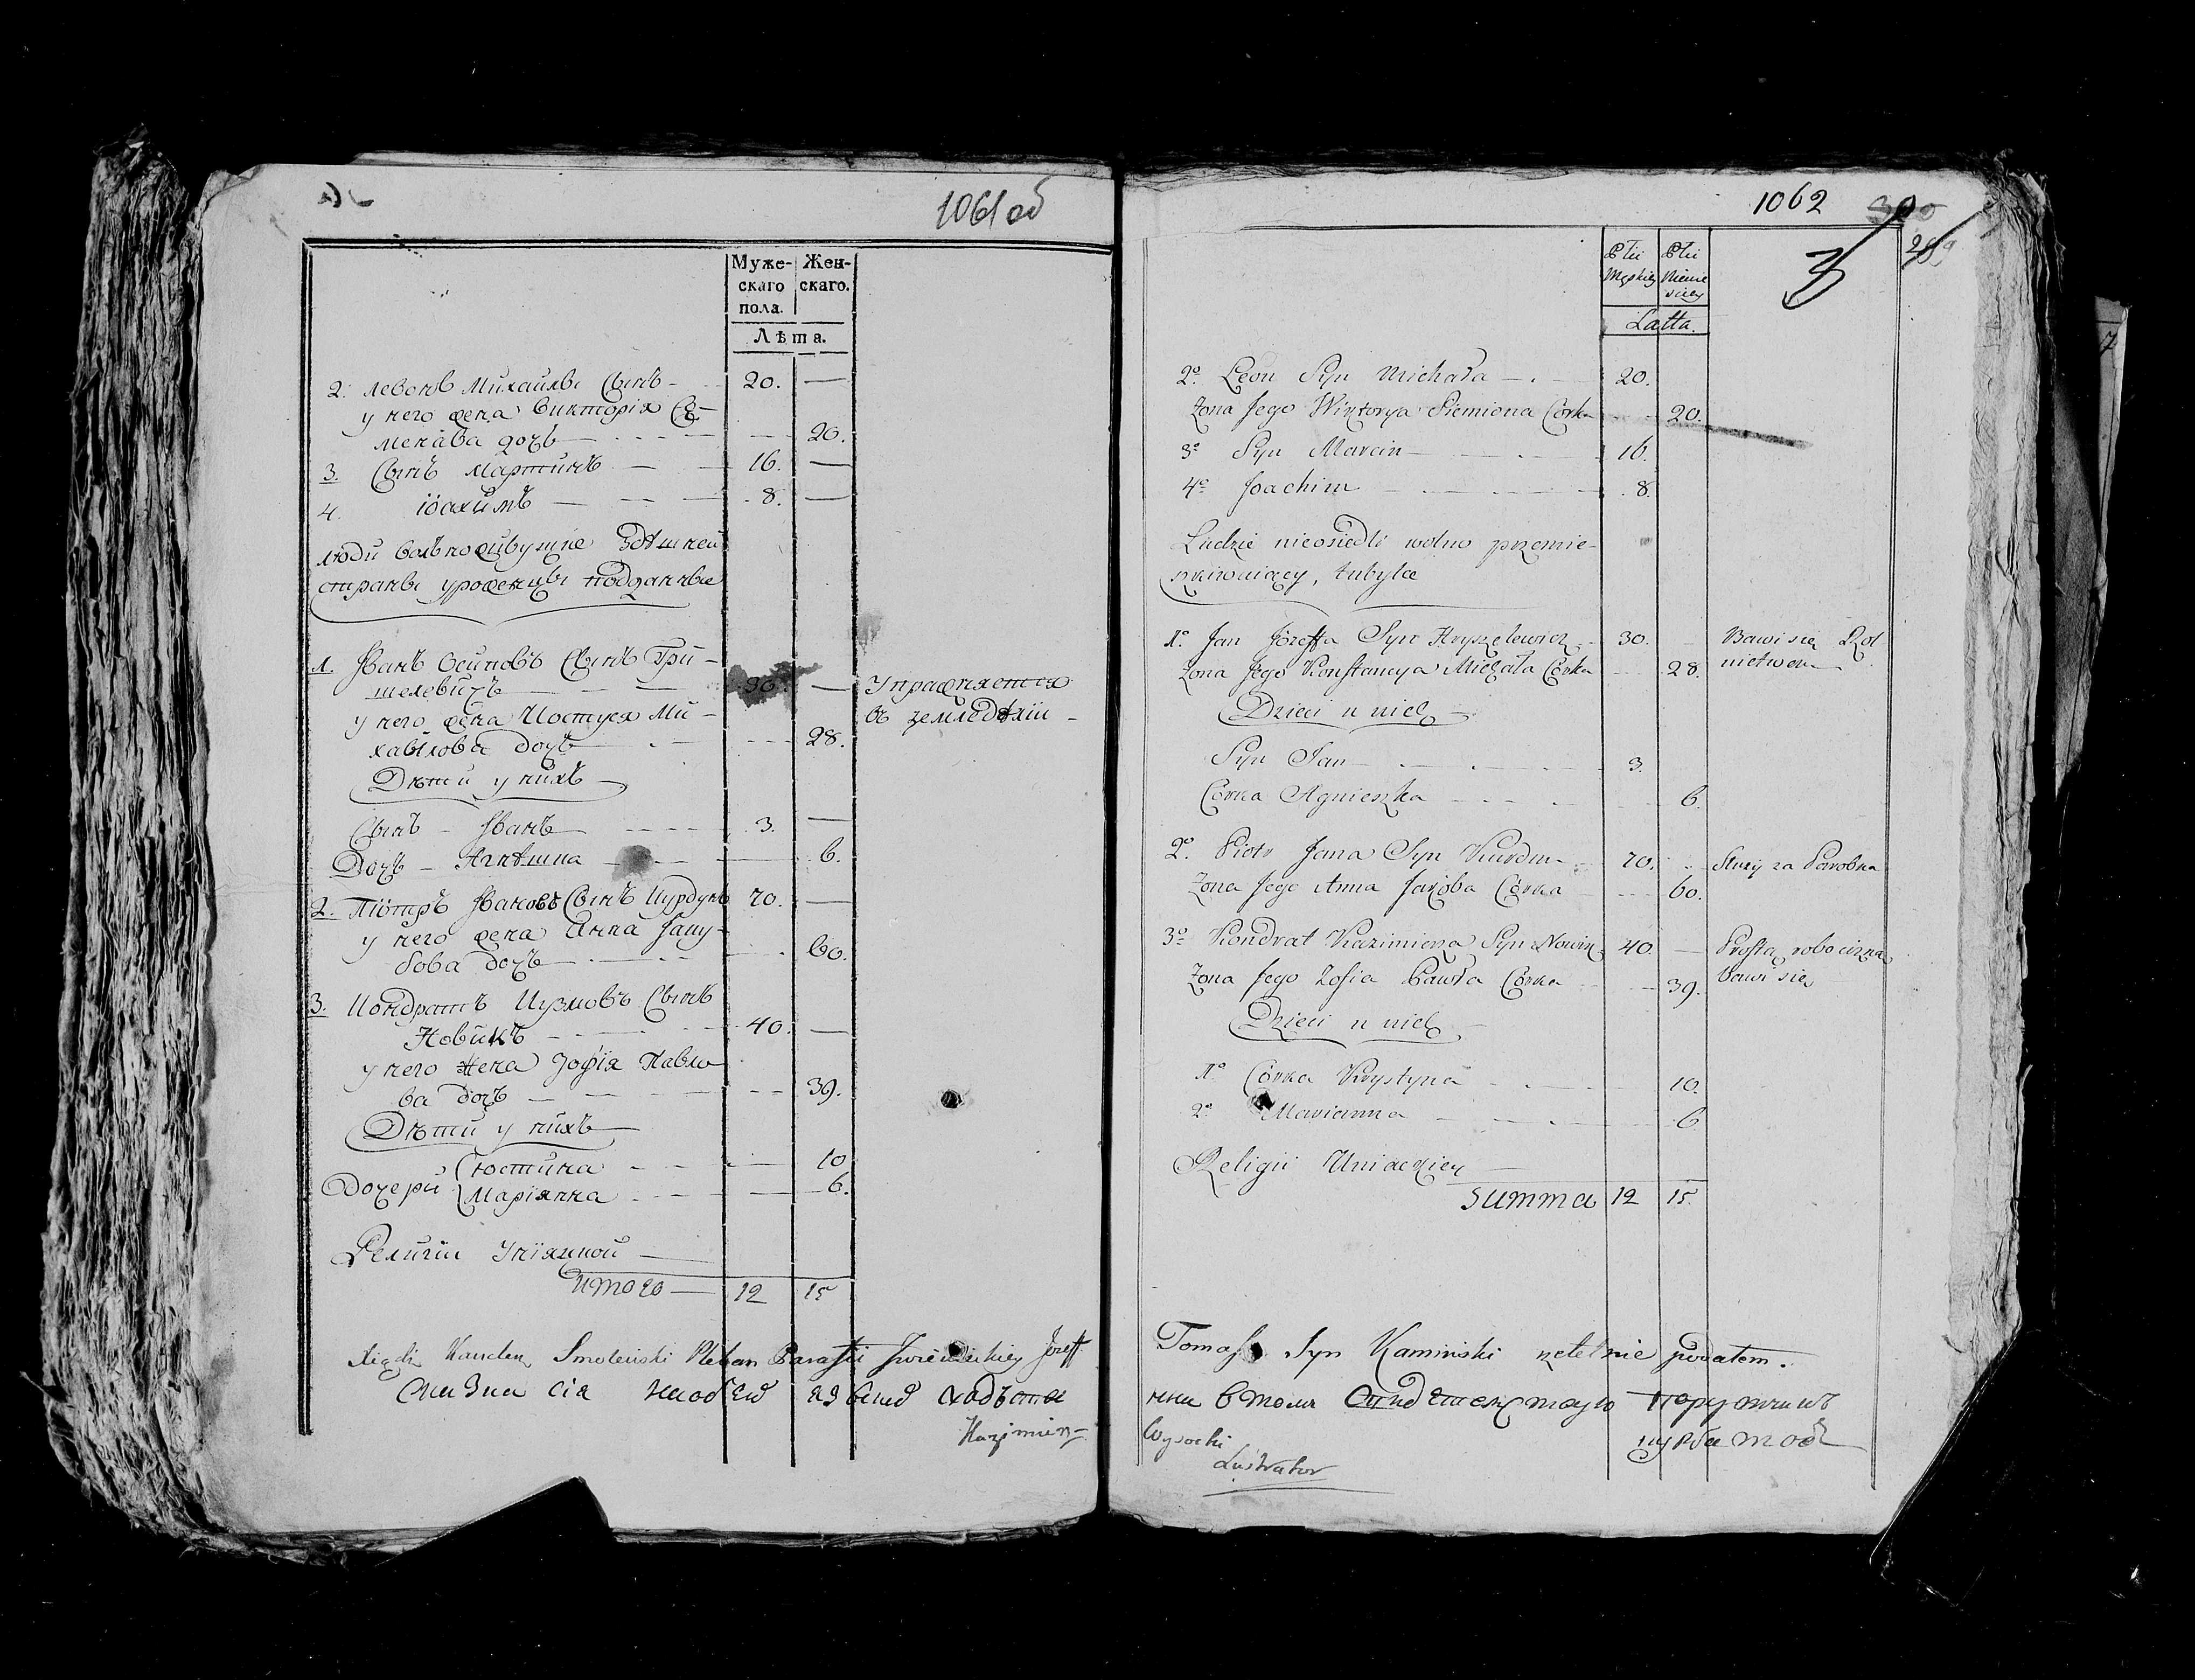 1061 об
Муже-
скаго
пола.
Жен-
скаго.
Лѣта.
2. Левонъ Михайлы Сынъ - 20. —
у него жена Викторія Се-
менава дочь — 20.
3. Сынъ Мартинъ — 16. —
4. Іоахимъ — 8. —
люди вольноживущіе здѣшней
страны уроженцы подданные
1. Иванъ Осиповъ Сынъ Гри-
шелевичъ — 30. — Упражняется
у него жена Костуся Ми- въ земледѣліи -
хайлова дочь — 28.
Дѣти у нихъ
Сынъ - Иванъ — 3. —
Дочь - Агнѣшка — 6.
2. Піотръ Ивановъ Сынъ Курдунъ 70. —
у него жена Анна Яку-
бова дочь — 60.
3. Кондратъ Кузмовъ Сынъ
Новикъ — 40. —
у него жена Зофія Павло
ва дочь — 39.
Дѣти у нихъ
Юстина — 10
Дочери Маріянна — 6.
Религіи Уніяцкой —
Итого — 12 15
Smoleński Pleban Parafii Józeff
Сказка сія
Kazimierz
1062
Płci
Męskiey
Płci
Niewie
sciey
Latta.
2o. Leon Syn Michała — 20.
Zona Jego Wiktorya Siemiona Córka 20.
3o Syn Marcin — 16.
4o Joachim — 8.
Ludzie nieosiedli wolno przemie-
szkiwaiący, tubylce
1o. Jan Józeffa Syn Hryszelewicz 30. Bawi się Rol
Zona Jego Konstancya Michała Córka 28. nictwem
Dzieci u nich
Syn Jan — 3.
Córka Agnieszka — 6.
2o. Piotr Jana Syn Kurdun 70. Służy za Parobka
Zona Jego Anna Jakóba Córka 60.
3o Kondrat Kazimierza Syn Nowik 40. — Prostą robocizną
Zona Jego Zofia Pawła Córka 39. bawi się
Dzieci u nich
1o Córka Krystyna 10.
2o Marianna 6
Religii Uniackiey
Summa 12 15.
Tomasza Syn Kamiński rzetelnie podałem.
Wysocki
Lustrator